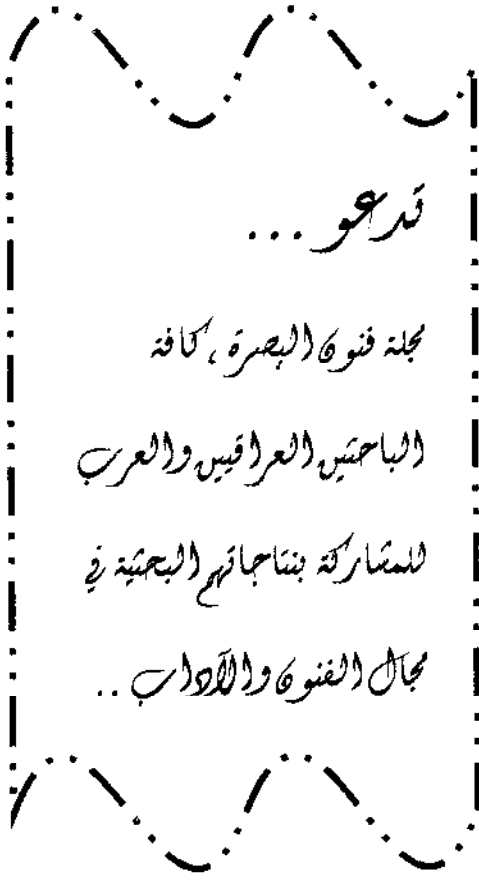 تدعو ...
مجلة فنون البصرة ، كافة
الباحثين العراقيين والعرب
للمشاركة بنتاجاتهم البحثية في
مجال الفنون والآداب ..